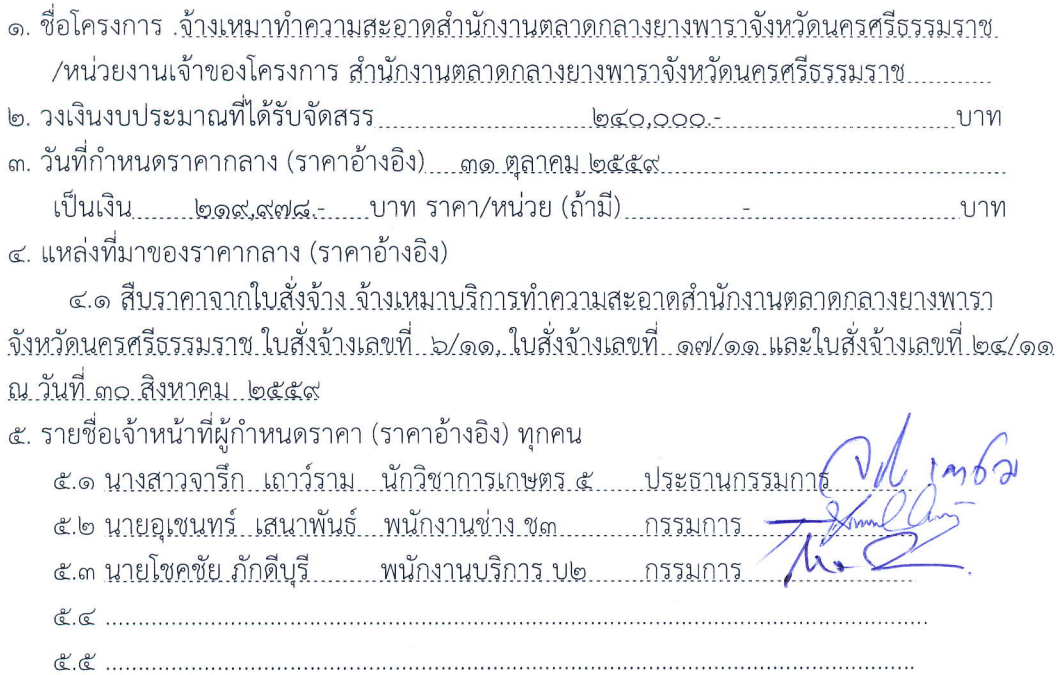 ๑. ชื่อโครงการ .จ้างเหมาทำความสะอาดสำนักงานตลาดกลางยางพาราจังหวัดนครศรีธรรมราช
/หน่วยงานเจ้าของโครงการ สำนักงานตลาดกลางยางพาราจังหวัดนครศรีธรรมราช
๒. วงเงินงบประมาณที่ได้รับจัดสรร ๒๔๐,๐๐๐.- บาท
๓. วันที่กำหนดราคากลาง (ราคาอ้างอิง) ๓๑ ตุลาคม ๒๕๕๙
เป็นเงิน ๒๑๙,๙๗๘.- บาท ราคา/หน่วย (ถ้ามี) - บาท
๔. แหล่งที่มาของราคากลาง (ราคาอ้างอิง)
๔.๑ สืบราคาจากใบสั่งจ้าง จ้างเหมาบริการทำความสะอาดสำนักงานตลาดกลางยางพารา
จังหวัดนครศรีธรรมราช ใบสั่งจ้างเลขที่ ๖/๑๑, ใบสั่งจ้างเลขที่ ๑๗/๑๑ และใบสั่งจ้างเลขที่ ๒๔/๑๑
ณ วันที่ ๓๐ สิงหาคม ๒๕๕๙
๕. รายชื่อเจ้าหน้าที่ผู้กำหนดราคา (ราคาอ้างอิง) ทุกคน
๕.๑ นางสาวจารึก เถาว์ราม นักวิชาการเกษตร ๕ ประธานกรรมการ
๕.๒ นายอุเชนทร์ เสนาพันธ์ พนักงานช่าง ช๓ กรรมการ
๕.๓ นายโชคชัย ภักดีบุรี พนักงานบริการ บ๒ กรรมการ
๕.๔ ........................................................................
๕.๕ ........................................................................